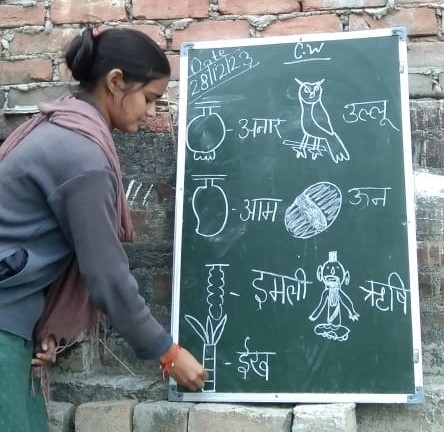 Date
28/12/23
C.W
अनार
उल्लू
आम
ऊन
इमली
ऋषि
ईख